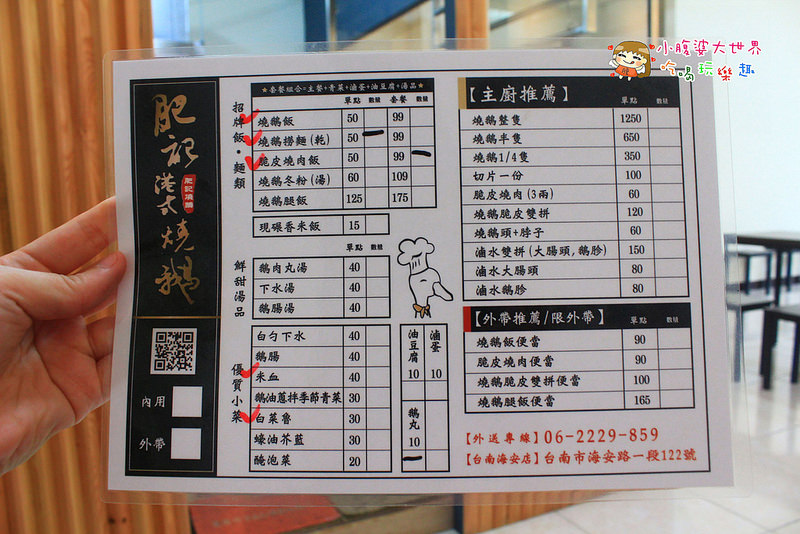 小腹婆大世界
吟喝玩樂趣
肥記港式燒鵝
肥記燒鵝
內用
外帶
★套餐組合=主餐+青菜+滷蛋+油豆腐+湯品★
招牌飯・麵類
單點 數量 套餐 數量
燒鵝飯 50 99
燒鵝撈麵(乾) 50 99
脆皮燒肉飯 50 99
燒鵝冬粉(湯) 60 109
燒鵝腿飯 125 175
現碾香米飯 15
單點 數量
鮮甜湯品
鵝肉丸湯 40
下水湯 40
鵝腸湯 40
優質小菜
白勺下水 40
鵝腸 40
米血 40
鵝油蔥拌季節青菜 30
白菜魯 30
蠔油芥藍 30
醃泡菜 20
油豆腐 10
滷蛋 10
鵝丸 10
【主廚推薦】 單點 數量
燒鵝整隻 1250
燒鵝半隻 650
燒鵝1/4隻 350
切片一份 100
脆皮燒肉(3兩) 60
燒鵝脆皮雙拼 120
燒鵝頭+脖子 60
滷水雙拼(大腸頭,鵝胗) 150
滷水大腸頭 80
滷水鵝胗 80
【外帶推薦/限外帶】 單點 數量
燒鵝飯便當 90
脆皮燒肉便當 90
燒鵝脆皮雙拼便當 100
燒鵝腿飯便當 165
【外送專線】06-2229-859
【台南海安店】台南市海安路一段122號